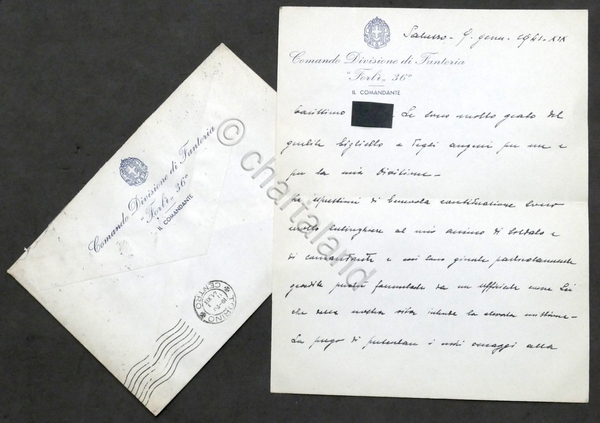 Comando Divisione di Fanteria
"Forlì" 36°
IL COMANDANTE
TORINO
CENTRO
© chartaland
Saluzzo - 9. genn. 1941-XIX
Comando Divisione di Fanteria
"Forlì" 36°
IL COMANDANTE
Carissimo Le sono molto grato del
gentile biglietto e degli auguri per me e
per la mia Divisione -
Le espressioni di benevola
molto al mio animo di soldato e
di comandante e mi sono giunte particolarmente
gradite perché formulate da un ufficiale come Lei
che della nostra vita intende la elevata missione -
La prego di presentare i miei omaggi alla